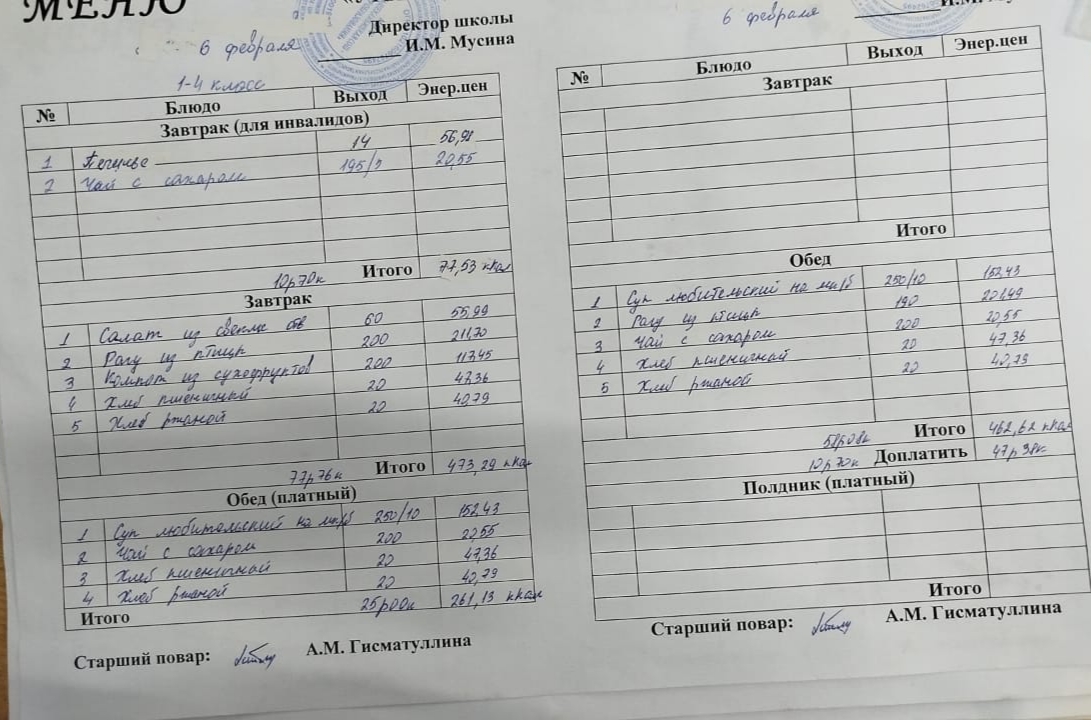 МЕНЮ
Директор школы
6 февраля
И.М. Мусина
1-4 класс
№ Блюдо Выход Энер.цен
Завтрак (для инвалидов)
1 Печенье 14 56,98
2 Чай с сахаром 195/5 20,55
10р70к Итого 77,53 ккал
Завтрак
1 Салат из свеклы отв 60 55,99
2 Рагу из птицы 200 211,70
3 Компот из сухофруктов 200 117,45
4 Хлеб пшеничный 20 47,36
5 Хлеб ржаной 20 40,79
77р76к Итого 473,29 ккал
Обед (платный)
1 Суп любительский на м/к/б 250/10 152,43
2 Чай с сахаром 200 20,55
3 Хлеб пшеничный 20 47,36
4 Хлеб ржаной 20 40,79
Итого 25р00к 261,13 ккал
Старший повар: А.М. Гисматуллина
6 февраля
№ Блюдо Выход Энер.цен
Завтрак
Итого
Обед
1 Суп любительский на м/к/б 250/10 152,43
2 Рагу из птицы 190 201,49
3 Чай с сахаром 200 20,55
4 Хлеб пшеничный 20 47,36
5 Хлеб ржаной 20 40,79
58р08к Итого 462,62 ккал
10р70к Доплатить 47р38к
Полдник (платный)
Итого
Старший повар: А.М. Гисматуллина